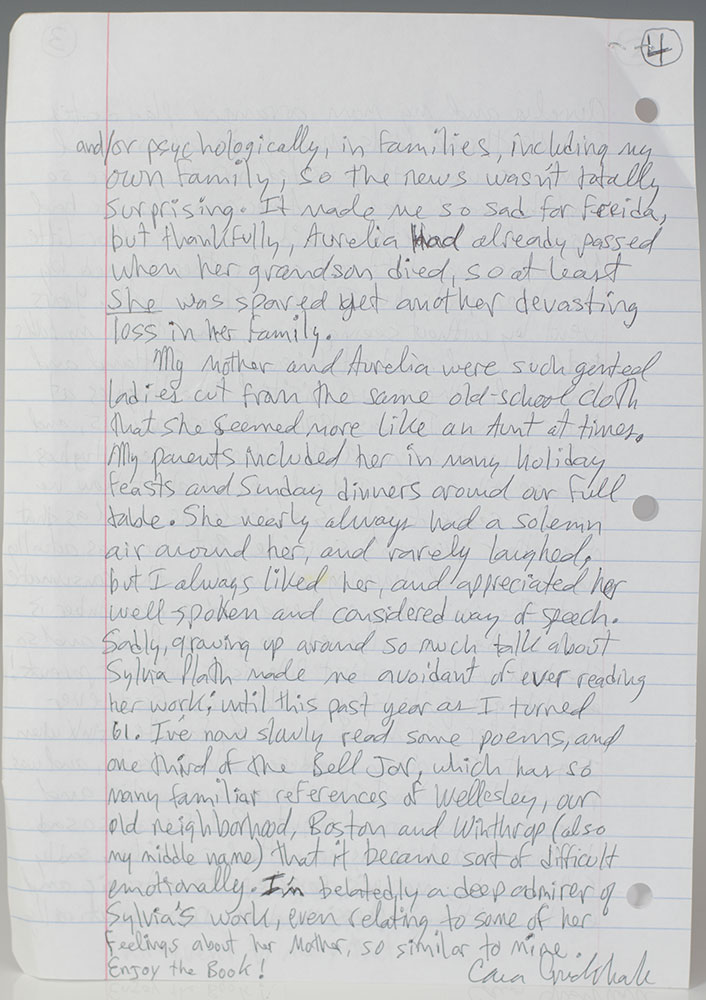 4
and/or psychologically, in families, including my
own family, so the news wasn't totally
surprising. It made me so sad for Freida,
but thankfully, Aurelia had already passed
when her grandson died, so at least
she was spared yet another devasting
loss in her family.
My Mother and Aurelia were such genteel
ladies cut from the same old-school cloth
that she seemed more like an Aunt at times.
My parents included her in many holiday
feasts and Sunday dinners around our full
table. She nearly always had a solemn
air around her, and rarely laughed,
but I always liked her, and appreciated her
well spoken and considered way of speech.
Sadly, growing up around so much talk about
Sylvia Plath made me avoidant of ever reading
her work; until this past year as I turned
61. I've now slowly read some poems, and
one third of the Bell Jar, which has so
many familiar references of Wellesley, our
old neighborhood, Boston and Winthrop (also
my middle name) that it became sort of difficult
emotionally. I'm belatedly a deep admirer of
Sylvia's work, even relating to some of her
feelings about her Mother, so similar to mine.
Enjoy the Book!